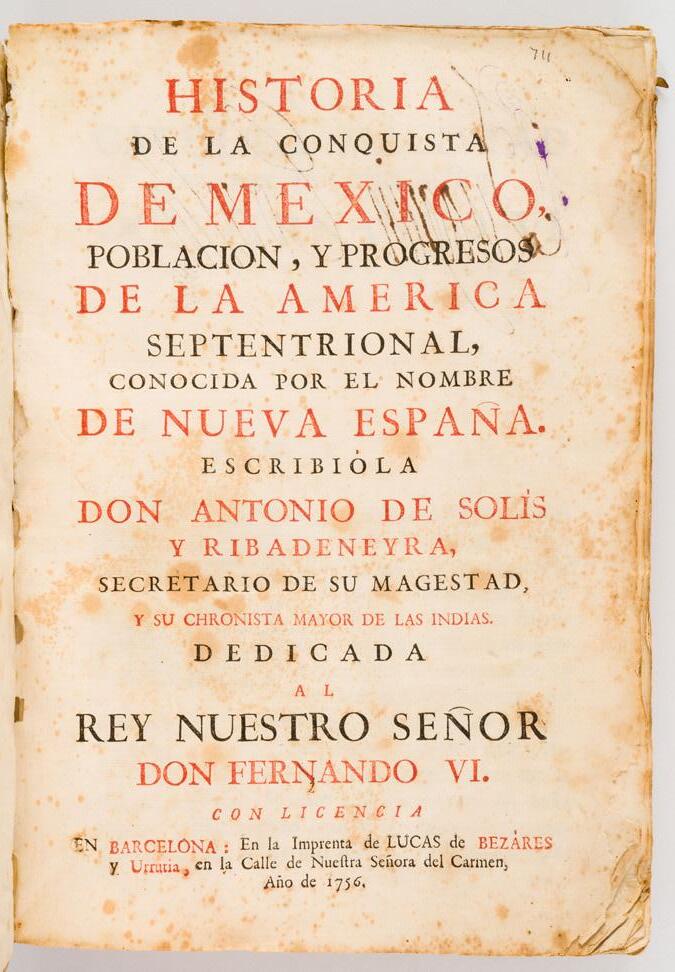 711
HISTORIA
DE LA CONQUISTA
DE MEXICO,
POBLACION, Y PROGRESOS
DE LA AMERICA
SEPTENTRIONAL,
CONOCIDA POR EL NOMBRE
DE NUEVA ESPAÑA.
ESCRIBIÓLA
DON ANTONIO DE SOLÍS
Y RIBADENEYRA,
SECRETARIO DE SU MAGESTAD,
Y SU CHRONISTA MAYOR DE LAS INDIAS.
DEDICADA
AL
REY NUESTRO SEÑOR
DON FERNANDO VI.
CON LICENCIA
EN BARCELONA: En la Imprenta de LUCAS de BEZÁRES
y Urrutia, en la Calle de Nueſtra Señora del Carmen,
Año de 1756.